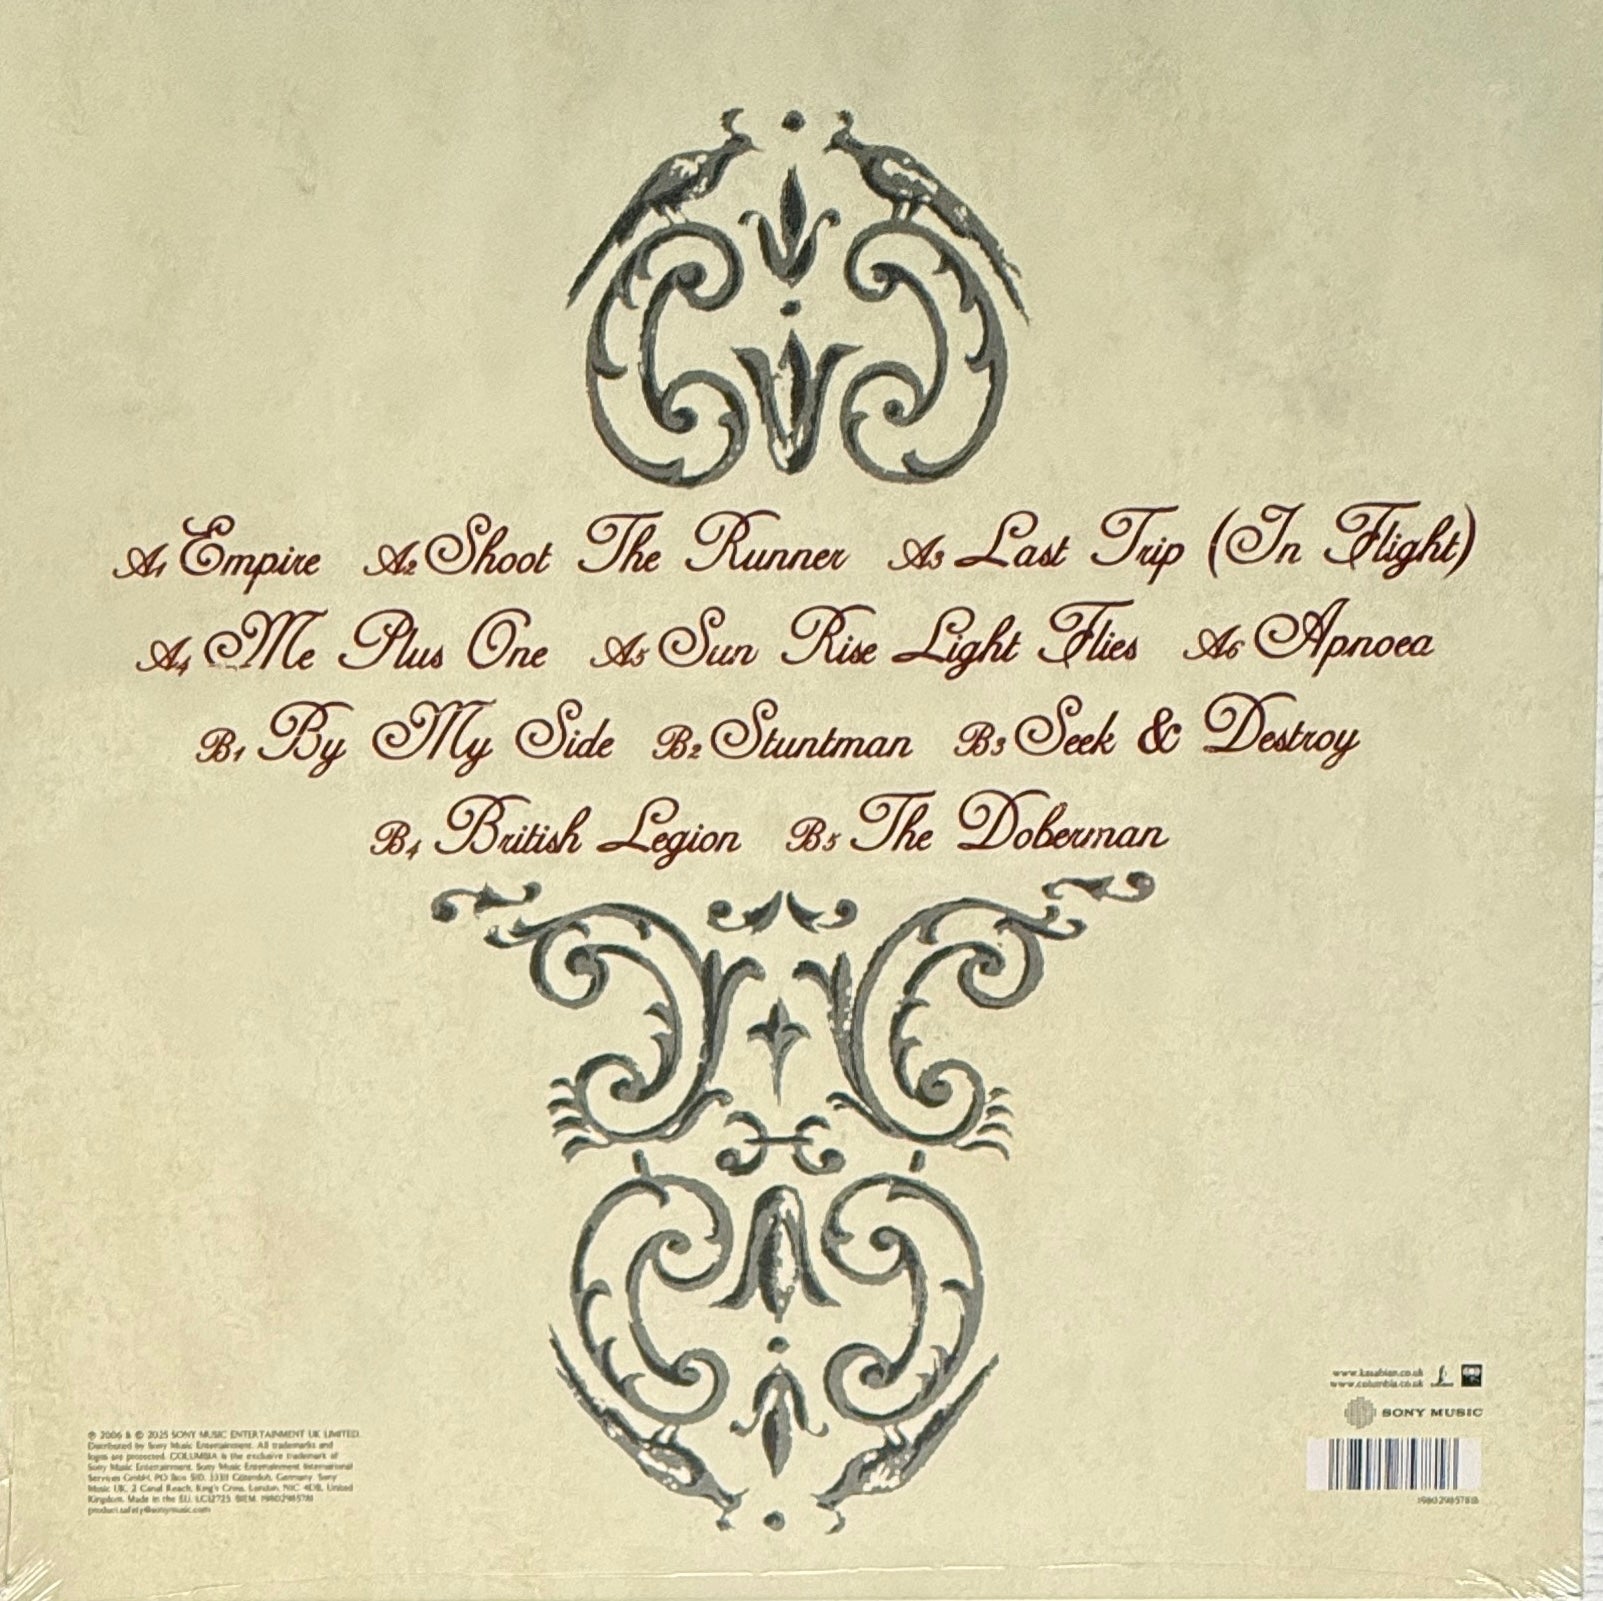 A1 Empire A2 Shoot The Runner A3 Last Trip (In Flight)
A4 Me Plus One A5 Sun Rise Light Flies A6 Apnoea
B1 By My Side B2 Stuntman B3 Seek & Destroy
B4 British Legion B5 The Doberman
www.kasabian.co.uk
www.columbia.co.uk
SONY MUSIC
℗ 2006 & © 2025 SONY MUSIC ENTERTAINMENT UK LIMITED.
Distributed by Sony Music Entertainment. All trademarks and
logos are protected. COLUMBIA is the exclusive trademark of
Sony Music Entertainment. Sony Music Entertainment International
Services GmbH, PO Box 510, 33311 Gütersloh, Germany. Sony
Music UK, 2 Canal Reach, King's Cross, London, N1C 4DB, United
Kingdom. Made in the EU. LC12723. BIEM.
product.safety@sonymusic.com